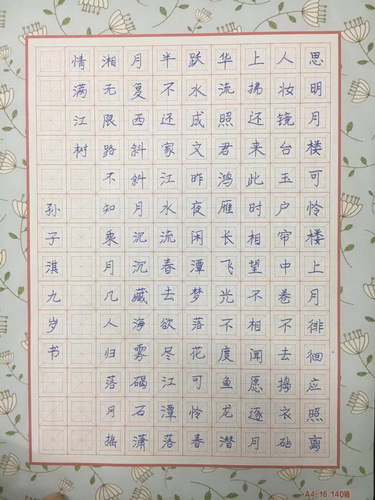 思明月楼可怜楼上月徘徊应照离
人妆镜台玉户帘中卷不去捣衣砧
上拂还来此时相望不相闻愿逐月
华流照君鸿雁长飞光不度鱼龙潜
跃水成文昨夜闲潭梦落花可怜春
半不还家江水流春去欲尽江潭落
月复西斜斜月沉沉藏海雾碣石潇
湘无限路不知乘月几人归落月摇
情满江树
孙子淇九岁书
A4-16 140格